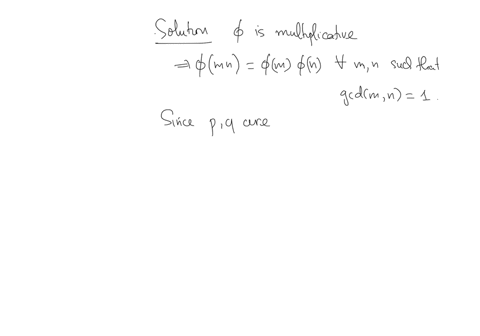 Solution ϕ is multiplicative
⇒ ϕ(mn) = ϕ(m) ϕ(n) ∀ m, n such that
gcd(m, n) = 1.
Since p, q are